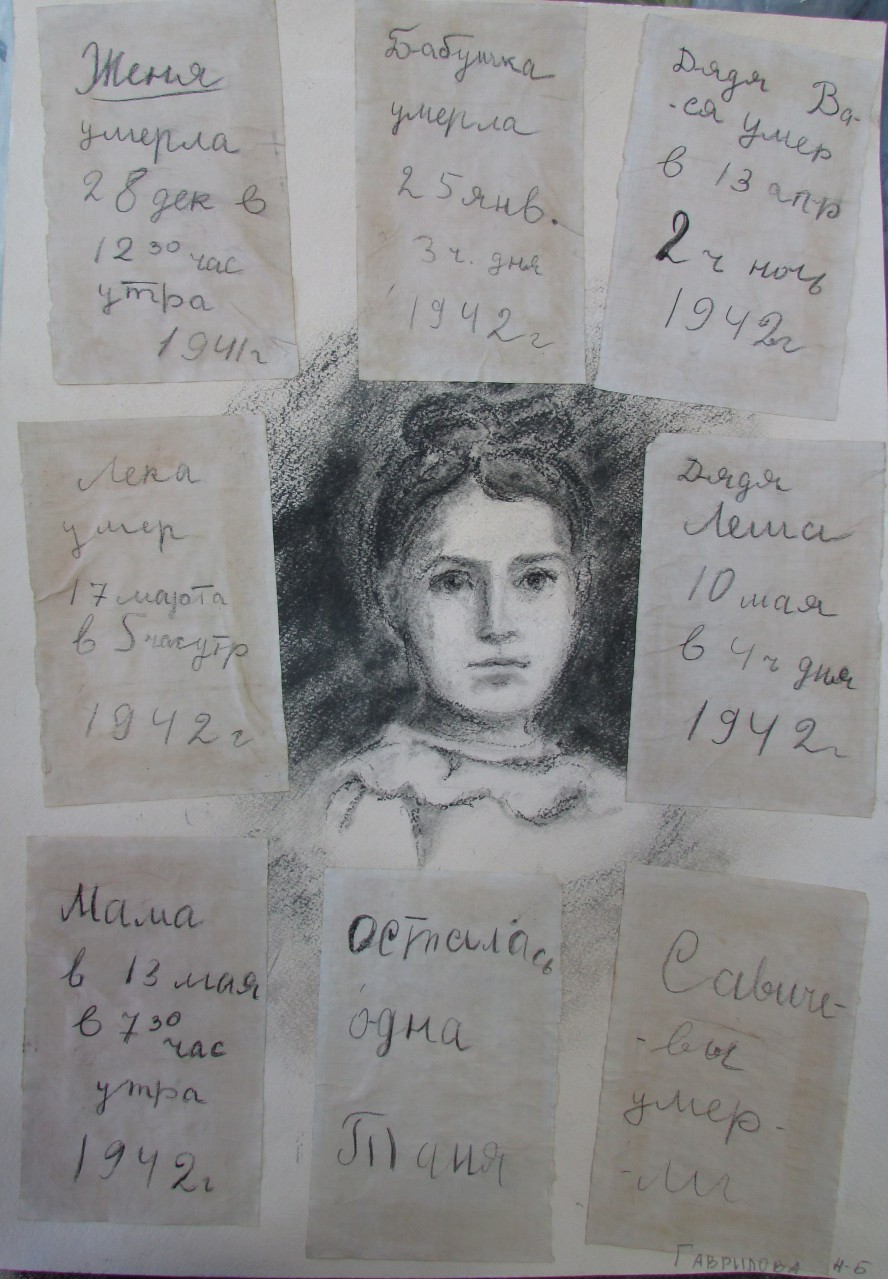 Женя
умерла
28 дек в
12 30 час
утра
1941 г
Бабушка
умерла
25 янв.
3 ч. дня
1942 г
Дядя Ва-
-ся умер
в 13 апр
2 ч ночь
1942 г
Лека
умер
17 марта
в 5 час утр
1942 г
Дядя
Леша
10 мая
в 4 ч дня
1942 г
Мама
в 13 мая
в 7 30
час
утра
1942 г
Осталась
одна
Таня
Савиче-
-вы
умер-
-ли
Гаврилова Н-Б